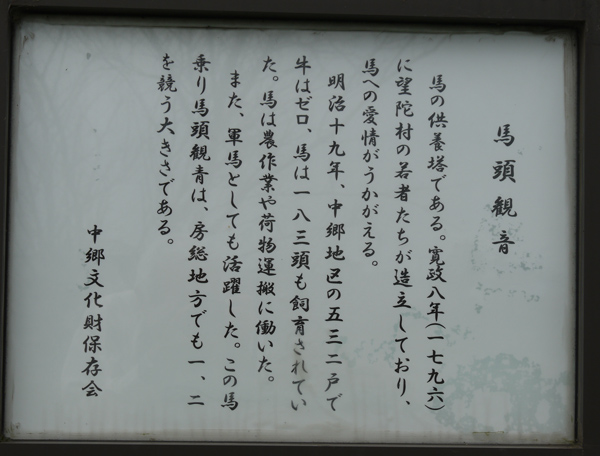 馬頭観音
馬の供養塔である。寛政八年(一七九六)
に望陀村の若者たちが造立しており、
馬への愛情がうかがえる。
明治十九年、中郷地区の五三二戸で
牛はゼロ、馬は一八三頭も飼育されてい
た。馬は農作業や荷物運搬に働いた。
また、軍馬としても活躍した。この馬
乗り馬頭観青は、房総地方でも一、二
を競う大きさである。
中郷文化財保存会